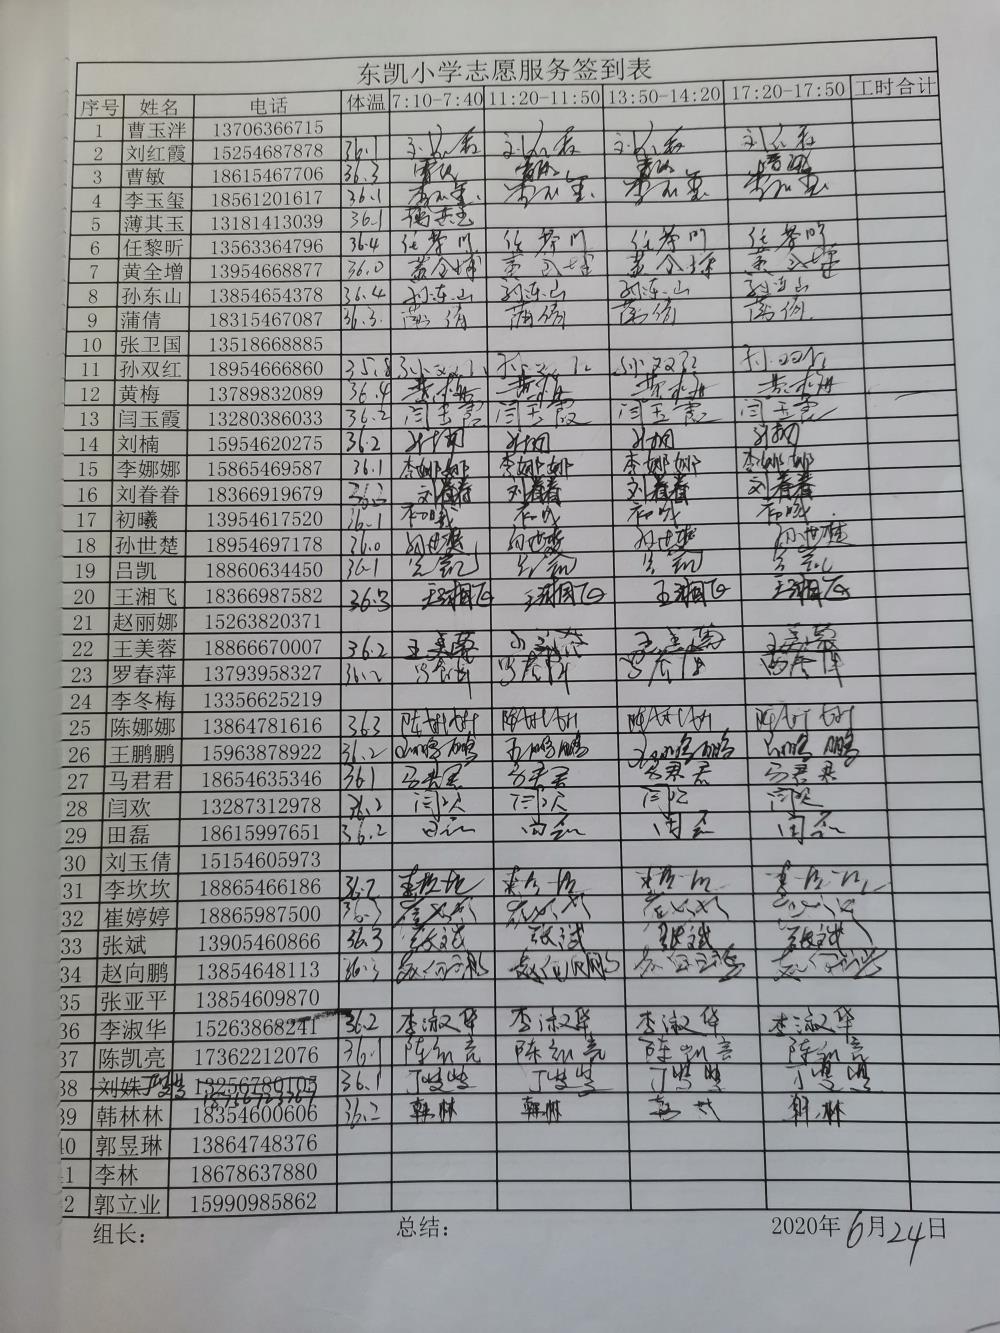 东凯小学志愿服务签到表
序号 姓名 电话 体温 7:10-7:40 11:20-11:50 13:50-14:20 17:20-17:50 工时合计
1 曹玉泮 13706366715
2 刘红霞 15254687878 36.1
3 曹敏 18615467706 36.3
4 李玉玺 18561201617 36.1 李玉玺 李玉玺 李玉玺 李玉玺
5 薄其玉 13181413039 36.1 薄其玉
6 任黎昕 13563364796 36.4 任黎昕 任黎昕 任黎昕 任黎昕
7 黄全增 13954668877 36.0 黄全增 黄全增 黄全增 黄全增
8 孙东山 13854654378 36.4 孙东山 孙东山 孙东山 孙东山
9 蒲倩 18315467087 36.3 蒲倩 蒲倩 蒲倩 蒲倩
10 张卫国 13518668885
11 孙双红 18954666860 35.8 孙双红 孙双红 孙双红 孙双红
12 黄梅 13789832089 36.4 黄梅 黄梅 黄梅 黄梅
13 闫玉霞 13280386033 36.2 闫玉霞 闫玉霞 闫玉霞 闫玉霞
14 刘楠 15954620275 36.2 刘楠 刘楠 刘楠 刘楠
15 李娜娜 15865469587 36.1 李娜娜 李娜娜 李娜娜 李娜娜
16 刘眷眷 18366919679 刘眷眷 刘眷眷 刘眷眷 刘眷眷
17 初曦 13954617520 36.1 初曦 初曦 初曦 初曦
18 孙世楚 18954697178 36.0 孙世楚 孙世楚 孙世楚 孙世楚
19 吕凯 18860634450 36.1 吕凯 吕凯 吕凯 吕凯
20 王湘飞 18366987582 36.3 王湘飞 王湘飞 王湘飞 王湘飞
21 赵丽娜 15263820371
22 王美蓉 18866670007 36.2 王美蓉 王美蓉 王美蓉 王美蓉
23 罗春萍 13793958327 36.2 罗春萍 罗春萍 罗春萍 罗春萍
24 李冬梅 13356625219
25 陈娜娜 13864781616 36.3 陈娜娜 陈娜娜 陈娜娜 陈娜娜
26 王鹏鹏 15963878922 36.2 王鹏鹏 王鹏鹏 王鹏鹏 王鹏鹏
27 马君君 18654635346 36.1 马君君 马君君 马君君 马君君
28 闫欢 13287312978 36.2 闫欢 闫欢 闫欢 闫欢
29 田磊 18615997651 36.2 田磊 田磊 田磊 田磊
30 刘玉倩 15154605973
31 李坎坎 18865466186 36.2 李坎坎 李坎坎 李坎坎 李坎坎
32 崔婷婷 18865987500 36.3 崔婷婷 崔婷婷 崔婷婷 崔婷婷
33 张斌 13905460866 36.3 张斌 张斌 张斌 张斌
34 赵向鹏 13854648113 36.3 赵向鹏 赵向鹏 赵向鹏 赵向鹏
35 张亚平 13854609870
36 李淑华 15263868241 36.2 李淑华 李淑华 李淑华 李淑华
37 陈凯亮 17362212076 36.1 陈凯亮 陈凯亮 陈凯亮 陈凯亮
38 刘姝 13256780105 36.1
39 韩林林 18354600606 36.2 韩林 韩林 韩林 韩林
40 郭昱琳 13864748376
41 李林 18678637880
2 郭立业 15990985862
组长: 总结: 2020年6月24日